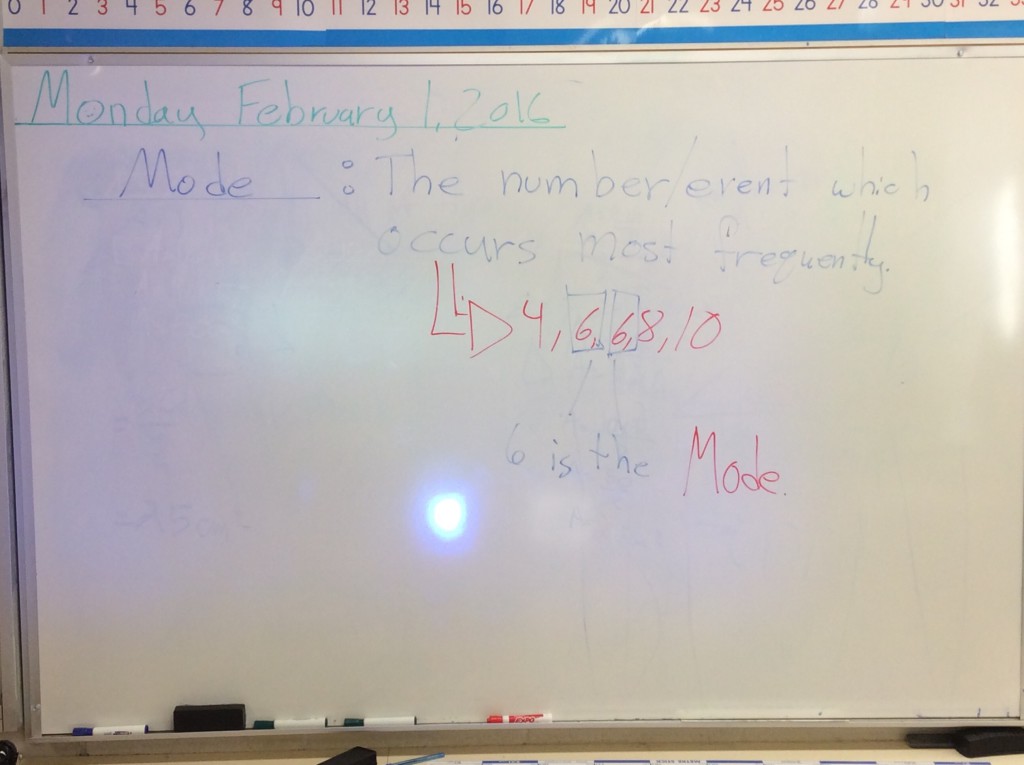 0 1 2 3 4 5 6 7 8 9 10 11 12 13 14 15 16 17 18 19 20 21 22 23 24 25 26 27 28 29 30 31 32
Monday February 1, 2016
Mode : The number/event which
occurs most frequently.
4, 6, 6, 8, 10
6 is the Mode.
EXPO